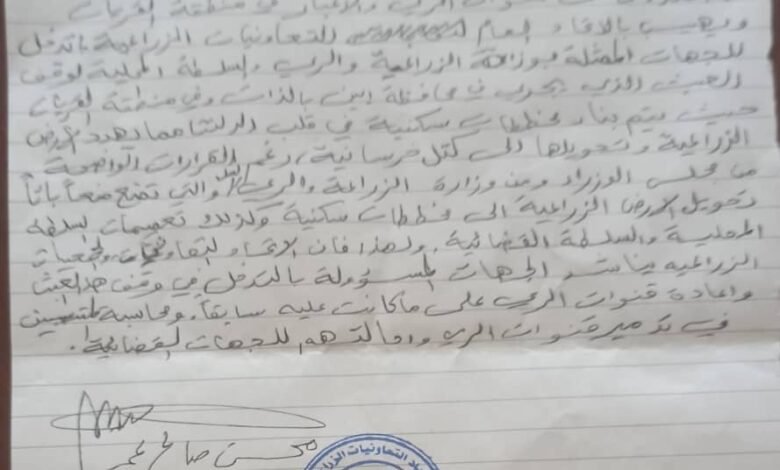 قنوات الري والآبار في منطقة القريات
ويهيب بالاتحاد العام للتعاونيات الزراعية بالتدخل
للجهات الممثلة بوزارة الزراعة والري والسلطة المحلية لوقف
العبث الذي يجري في محافظة أبين بالذات وفي منطقة القريات
حيث يتم بناء مخططات سكنية في قلب الدلتا مما يهدد الأرض
الزراعية وتحويلها إلى كتل خرسانية، رغم القرارات الواضحة
من مجلس الوزراء ومن وزارة الزراعة والري والتي تضع منعاً باتاً
تحويل الأرض الزراعية الى مخططات سكنية وكذلك تعميمات السلطة
المحلية والسلطة القضائية. ولهذا فان الاتحاد التعاونيات والجمعيات
الزراعيه يناشد الجهات المسؤولة بالتدخل في وقف هذا العبث
واعادة قنوات الري على ماكانت عليه سابقاً. ومحاسبة المتسببين
في تدمير قنوات الري واحالتهم للجهات القضائية.
محسن صالح
اتحاد التعاونيات الزرا